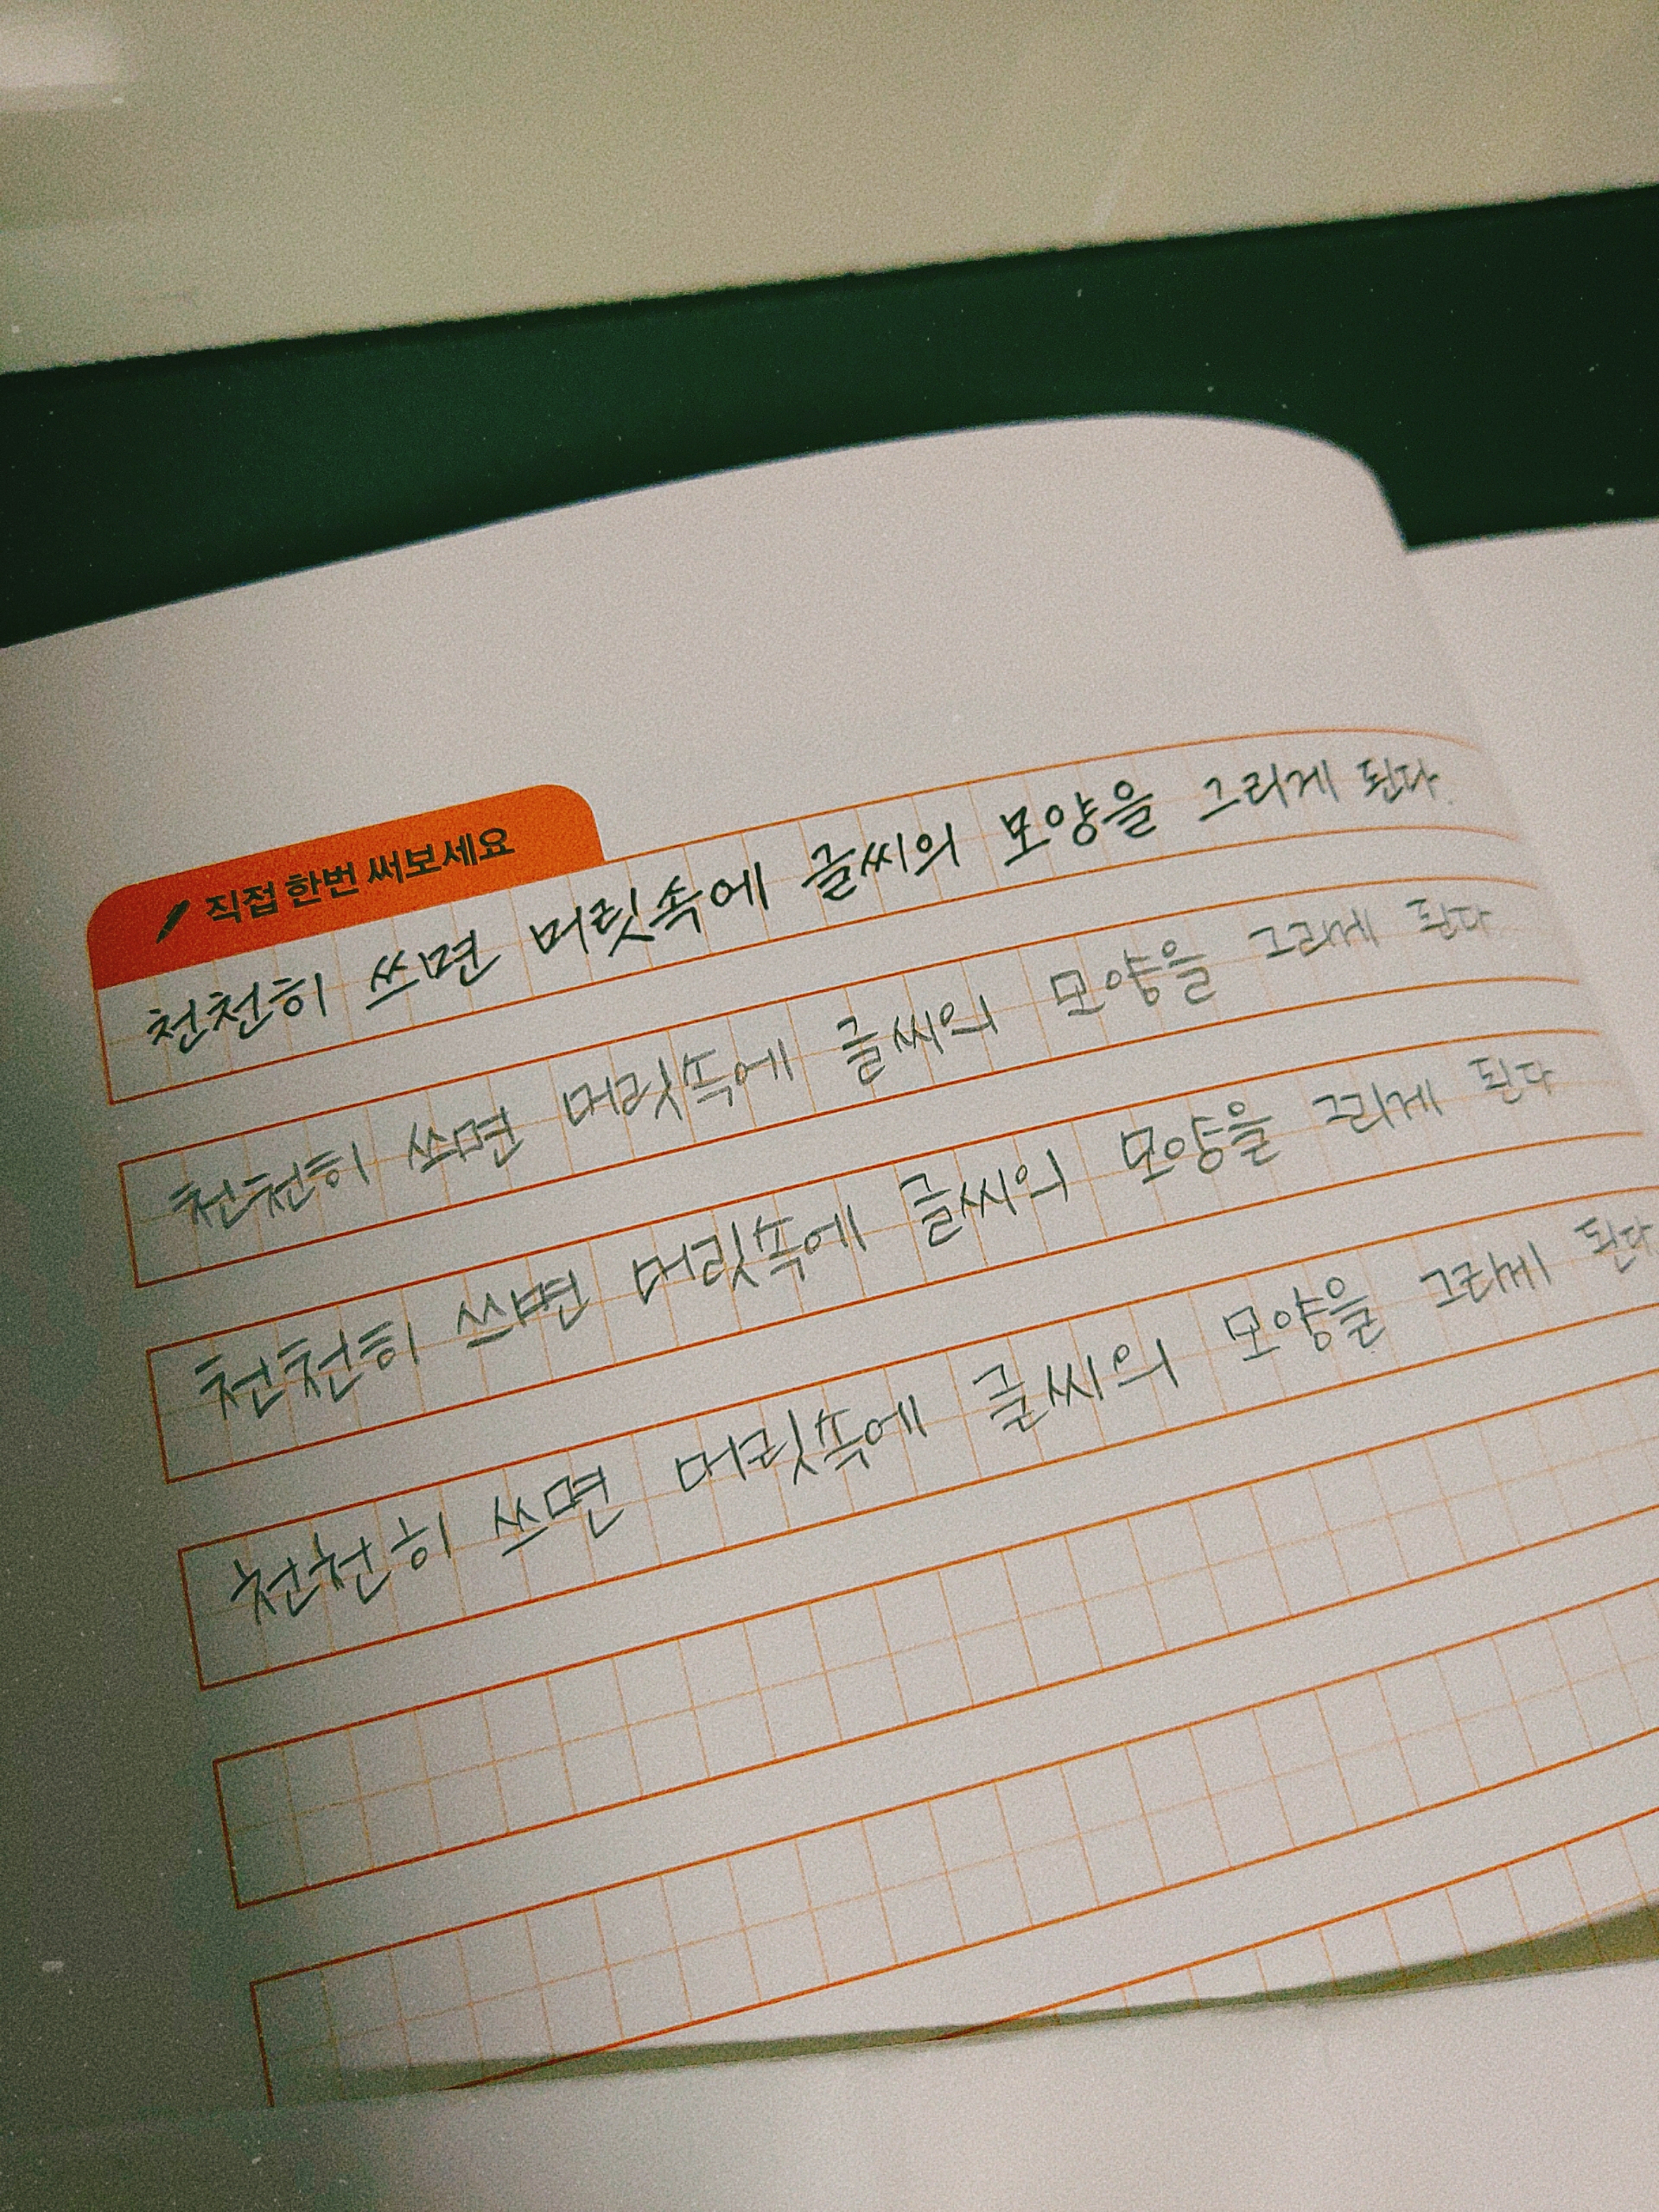 직접 한번 써보세요
천천히 쓰면 머릿속에 글씨의 모양을 그리게 된다.
천천히 쓰면 머릿속에 글씨의 모양을 그리게 된다
천천히 쓰면 머릿속에 글씨의 모양을 그리게 된다
천천히 쓰면 머릿속에 글씨의 모양을 그리게 된다